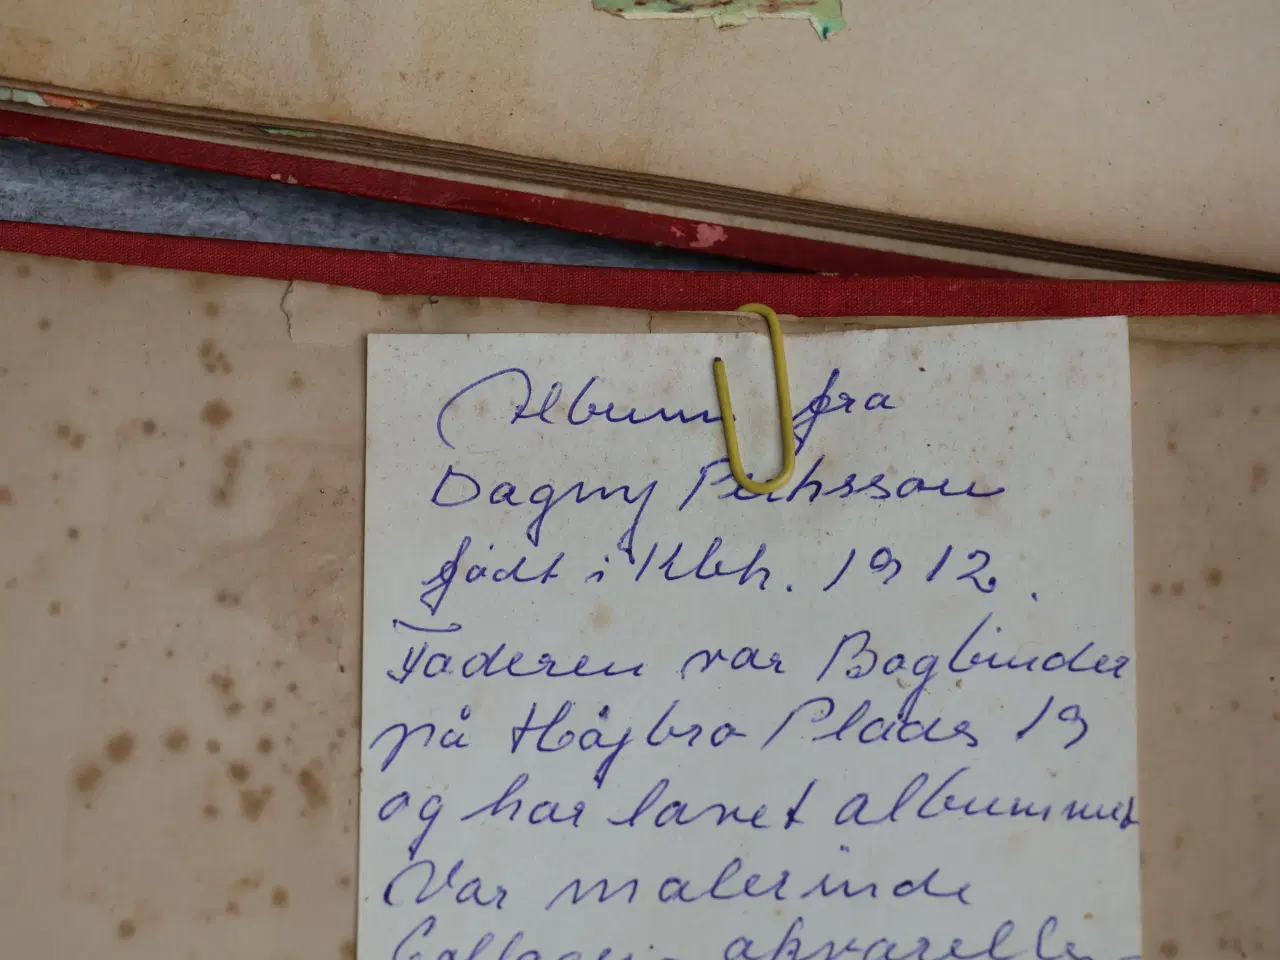 Album fra
Dagny
født i Kbh. 1912.
Faderen var Bogbinder
på Højbro Plads 19
og har lavet albummet
Var malerinde